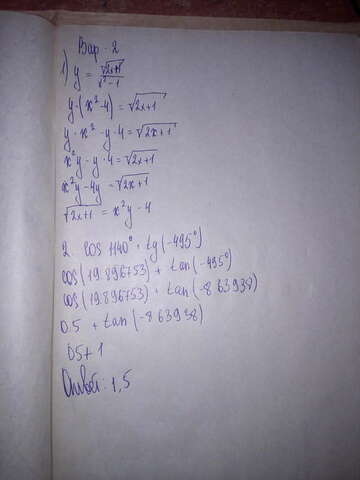 Вар - 2
1) y = √2x+1 / x²-1
y·(x²-4) = √2x+1
y·x² - y·4 = √2x+1
x²y - y·4 = √2x+1
x²y - 4y = √2x+1
√2x+1 = x²y - 4
2. cos 1140° + tg(-495°)
cos(19.896753) + tan(-495°)
cos(19.896753) + tan(-8 63938)
0.5 + tan(-8 63938)
05+1
Ответ: 1,5